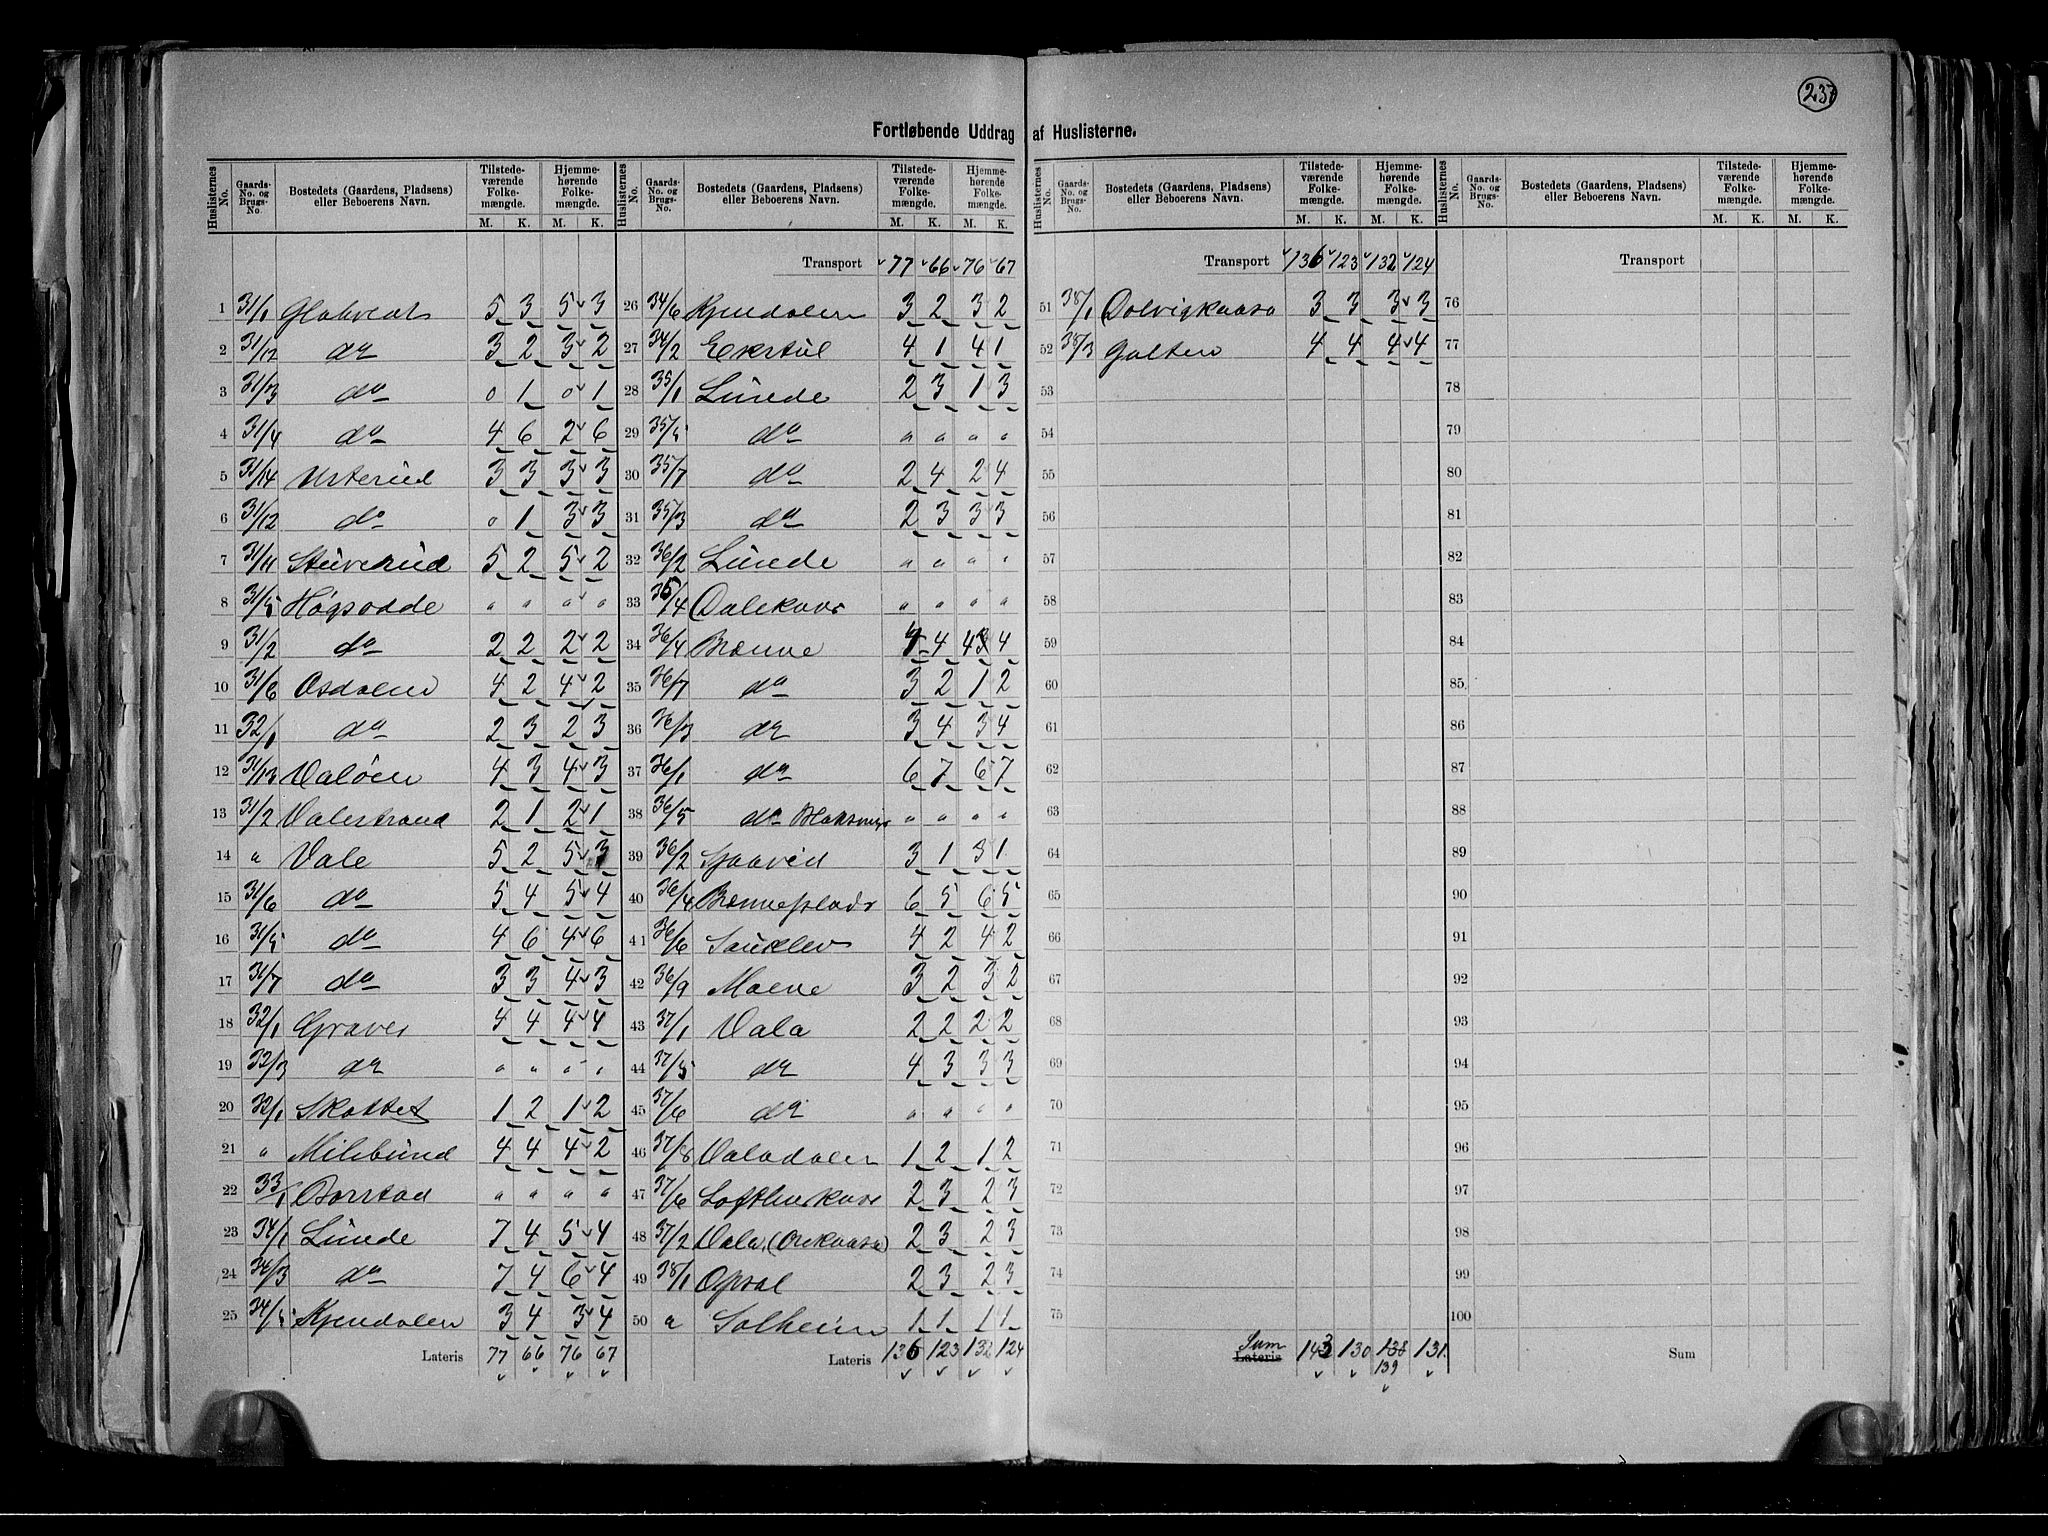 237
Fortløbende Uddrag af Huslisterne.
Huslisternes No. Gaards-No. og Brugs-No. Bostedets (Gaardens, Pladsens) eller Beboerens Navn. Tilstedeværende Folkemængde. M. K. Hjemmehørende Folkemængde. M. K.
1 31/1 5 3 5 3
2 31/12 do 3 2 3 2
3 31/3 do 0 1 0 1
4 31/4 do 4 6 2 6
5 31/14 Usterud 3 3 3 3
6 31/12 do 0 1 3 3
7 31/11 Stuverud 5 2 5 2
8 31/5 Høgsodde " " " "
9 31/2 do 2 2 2 2
10 31/6 Osdalen 4 2 4 2
11 32/1 do 2 3 2 3
12 31/13 Valøen 4 3 4 3
13 31/2 Valestrand 2 1 2 1
14 " Vale 5 2 5 3
15 31/6 do 5 4 5 4
16 31/5 do 4 6 4 6
17 31/7 do 3 3 4 3
18 32/1 Graver 4 4 4 4
19 32/3 do " " " "
20 32/1 Skottet 1 2 1 2
21 " Milebund 4 4 4 2
22 33/1 Borstad " " " "
23 34/1 Lunde 7 4 5 4
24 34/3 do 7 4 6 4
25 34/5 Kjendalen 3 4 3 4
Lateris 77 66 76 67
Huslisternes No. Gaards-No. og Brugs-No. Bostedets (Gaardens, Pladsens) eller Beboerens Navn. Tilstedeværende Folkemængde. M. K. Hjemmehørende Folkemængde. M. K.
Transport 77 66 76 67
26 34/6 Kjendalen 3 2 3 2
27 34/2 Ekrstul 4 1 4 1
28 35/1 Lunde 2 3 1 3
29 35/5 do " " " "
30 35/7 do 2 4 2 4
31 35/3 do 2 3 3 3
32 36/2 Lunde " " " "
33 35/4 Dalekaas " " " "
34 36/4 Brenne 4 4 4
35 36/7 do 3 2 1 2
36 36/3 do 3 4 3 4
37 36/1 do 6 7 6 7
38 36/5 do " " " "
39 36/2 3 1 3 1
40 36/4 Brenneplads 6 5 6 5
41 36/6 Sauklev 4 2 4 2
42 36/9 Moene 3 2 3 2
43 37/1 Vala 2 2 2 2
44 37/5 do 4 3 3 3
45 37/6 do " " " "
46 37/8 Valadalen 1 2 1 2
47 37/6 2 3 2 3
48 37/2 Vala (Orekaasa) 2 3 2 3
49 38/1 Opsal 2 3 2 3
50 " Solheim 1 1 1 1
Lateris 136 123 132 124
Huslisternes No. Gaards-No. og Brugs-No. Bostedets (Gaardens, Pladsens) eller Beboerens Navn. Tilstedeværende Folkemængde. M. K. Hjemmehørende Folkemængde. M. K.
Transport 136 123 132 124
51 38/1 Dalvigkaasa 3 3 3 3
52 38/3 Galten 4 4 4 4
53
54
55
56
57
58
59
60
61
62
63
64
65
66
67
68
69
70
71
72
73
74
75
Sum Lateris 143 130 138 131
139
Huslisternes No. Gaards-No. og Brugs-No. Bostedets (Gaardens, Pladsens) eller Beboerens Navn. Tilstedeværende Folkemængde. M. K. Hjemmehørende Folkemængde. M. K.
Transport
76
77
78
79
80
81
82
83
84
85
86
87
88
89
90
91
92
93
94
95
96
97
98
99
100
Sum